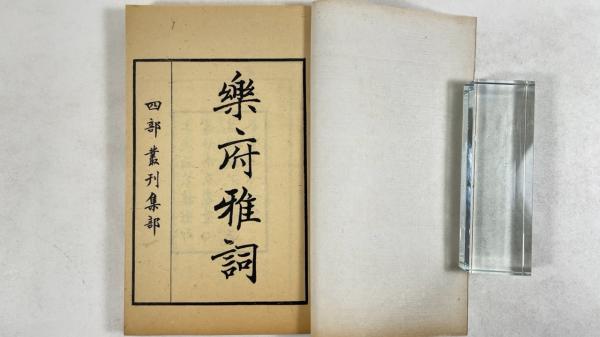 樂府雅詞
四部叢刊集部